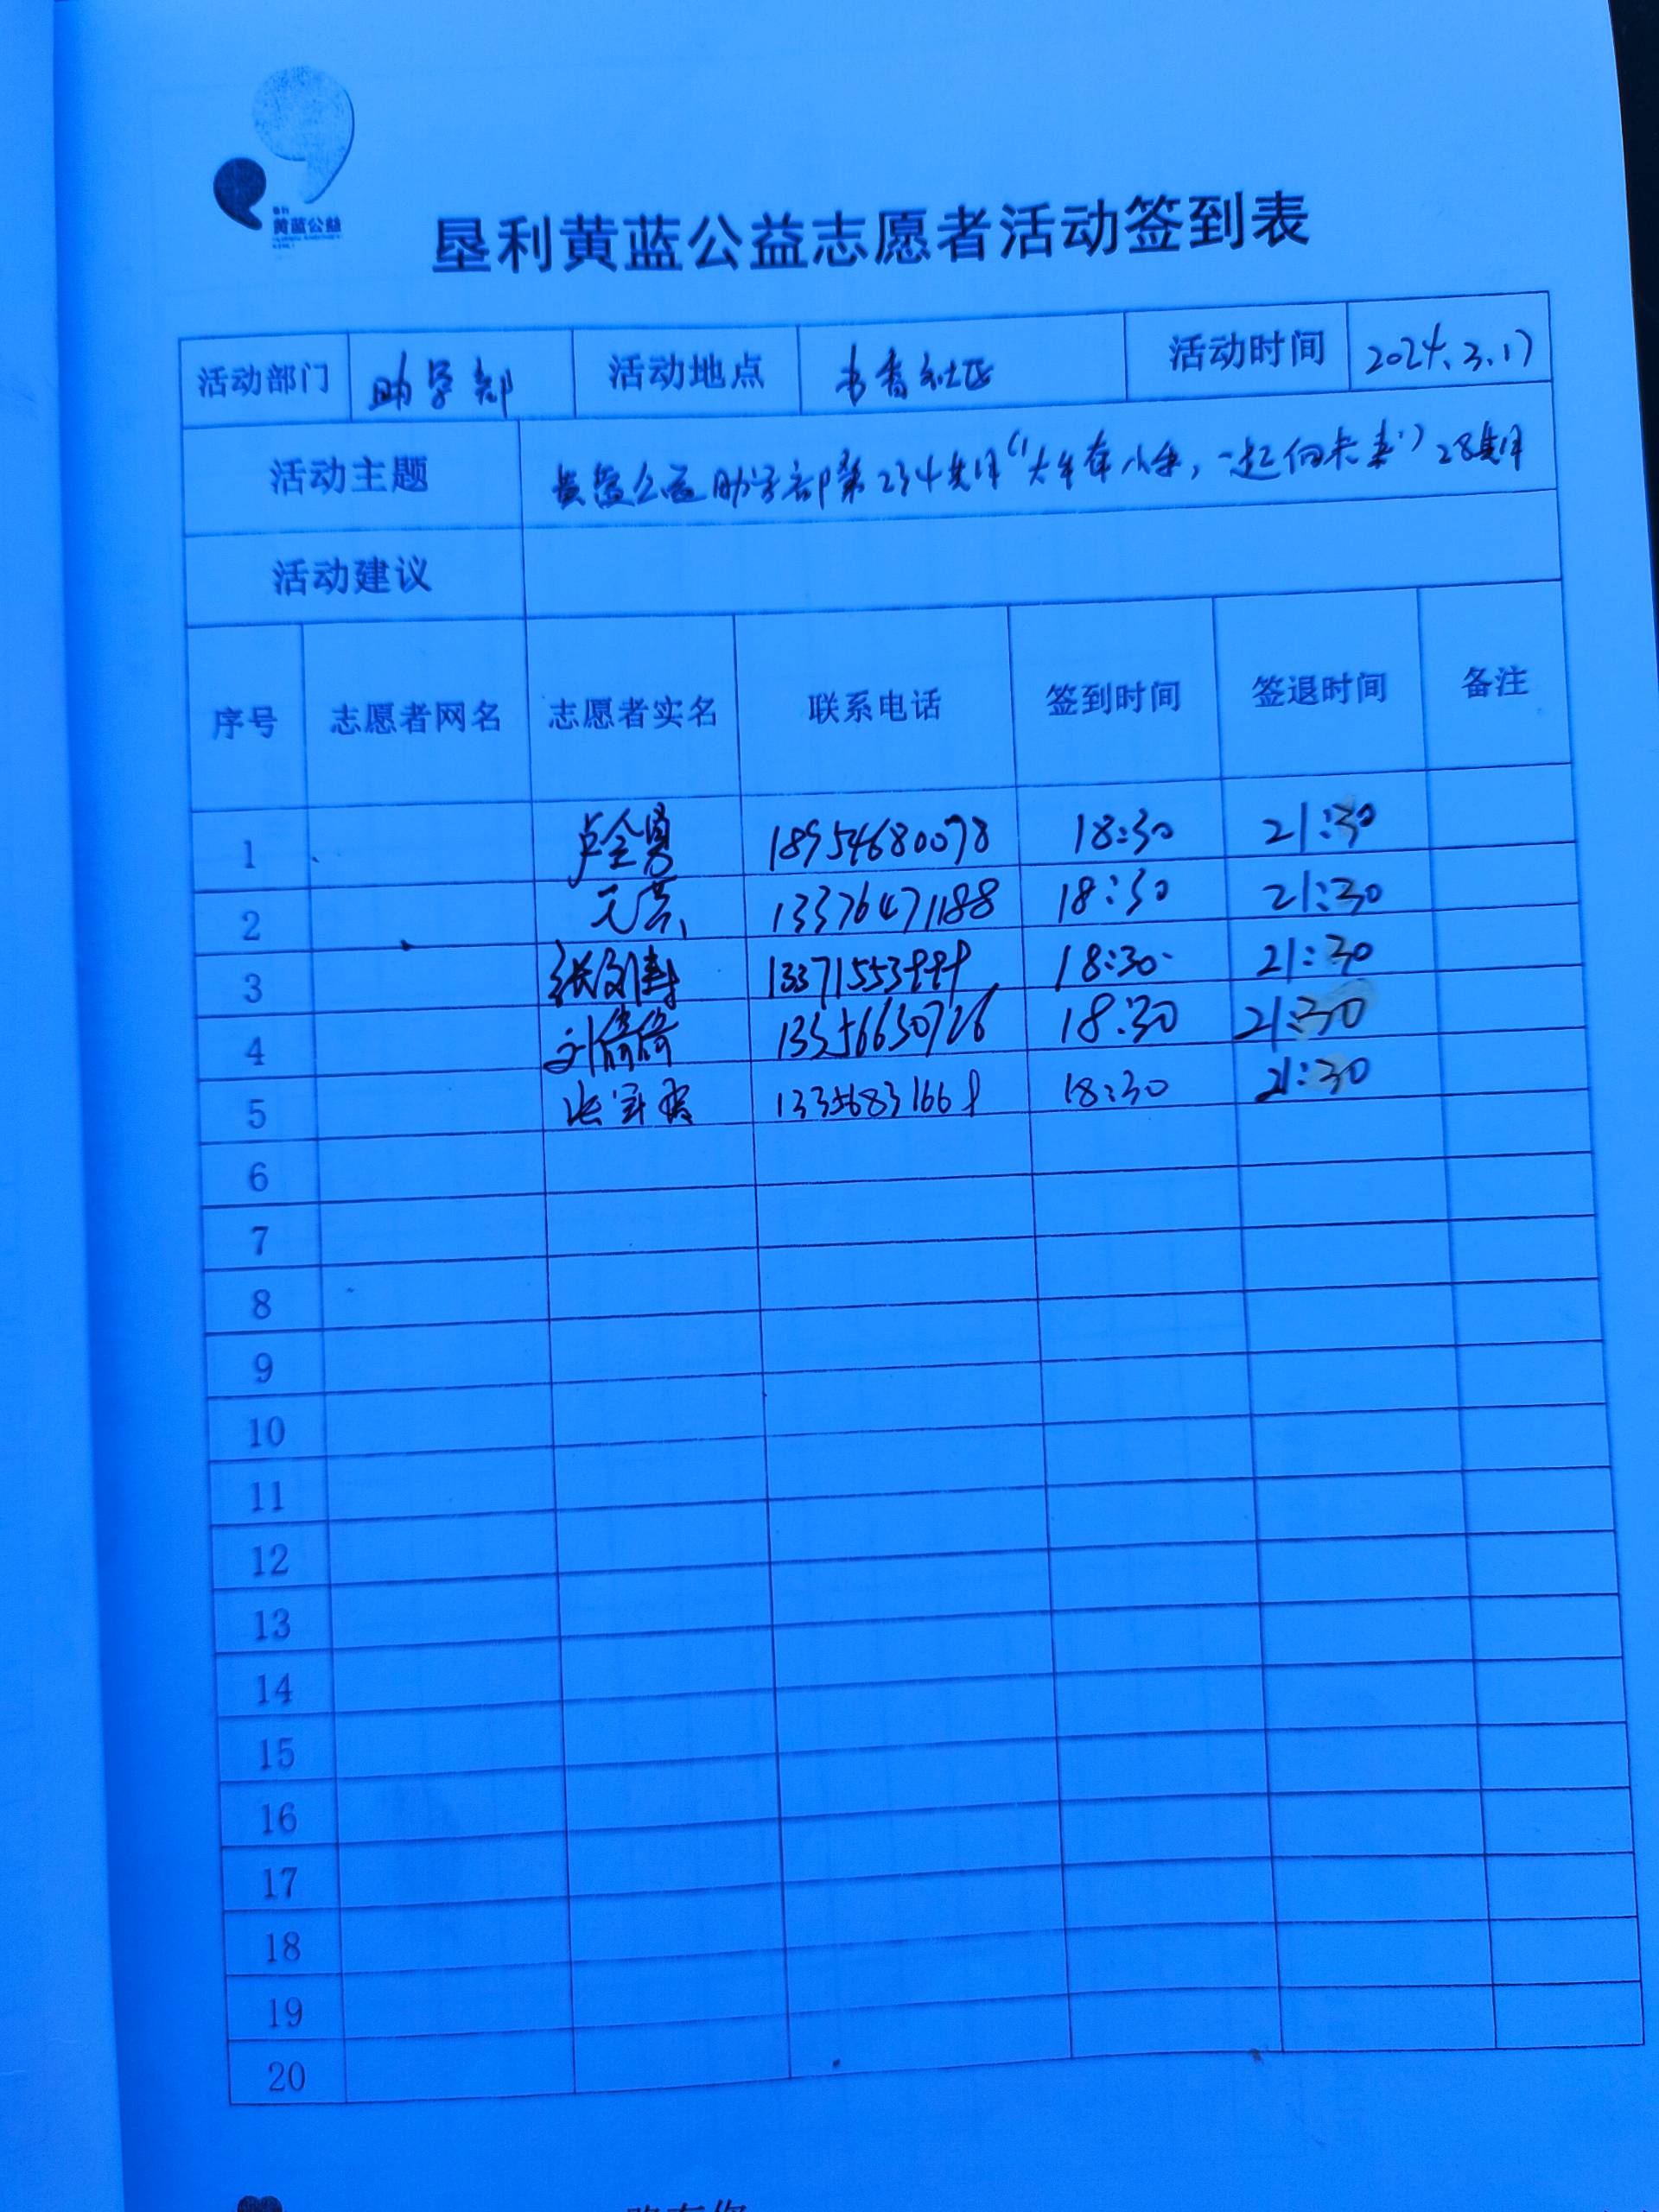 黄蓝公益
垦利黄蓝公益志愿者活动签到表
活动部门 助学部 活动地点 书香社区 活动时间 2024.3.17
活动主题 黄蓝公益助学部第234期“大手牵小手，一起向未来”28期
活动建议
序号 志愿者网名 志愿者实名 联系电话 签到时间 签退时间 备注
1 卢全勇 18954680078 18:30 21:30
2 13376471188 18:30 21:30
3 张文涛 13371553999 18:30 21:30
4 刘倩倩 18:30 21:30
5 13356831669 18:30 21:30
6
7
8
9
10
11
12
13
14
15
16
17
18
19
20